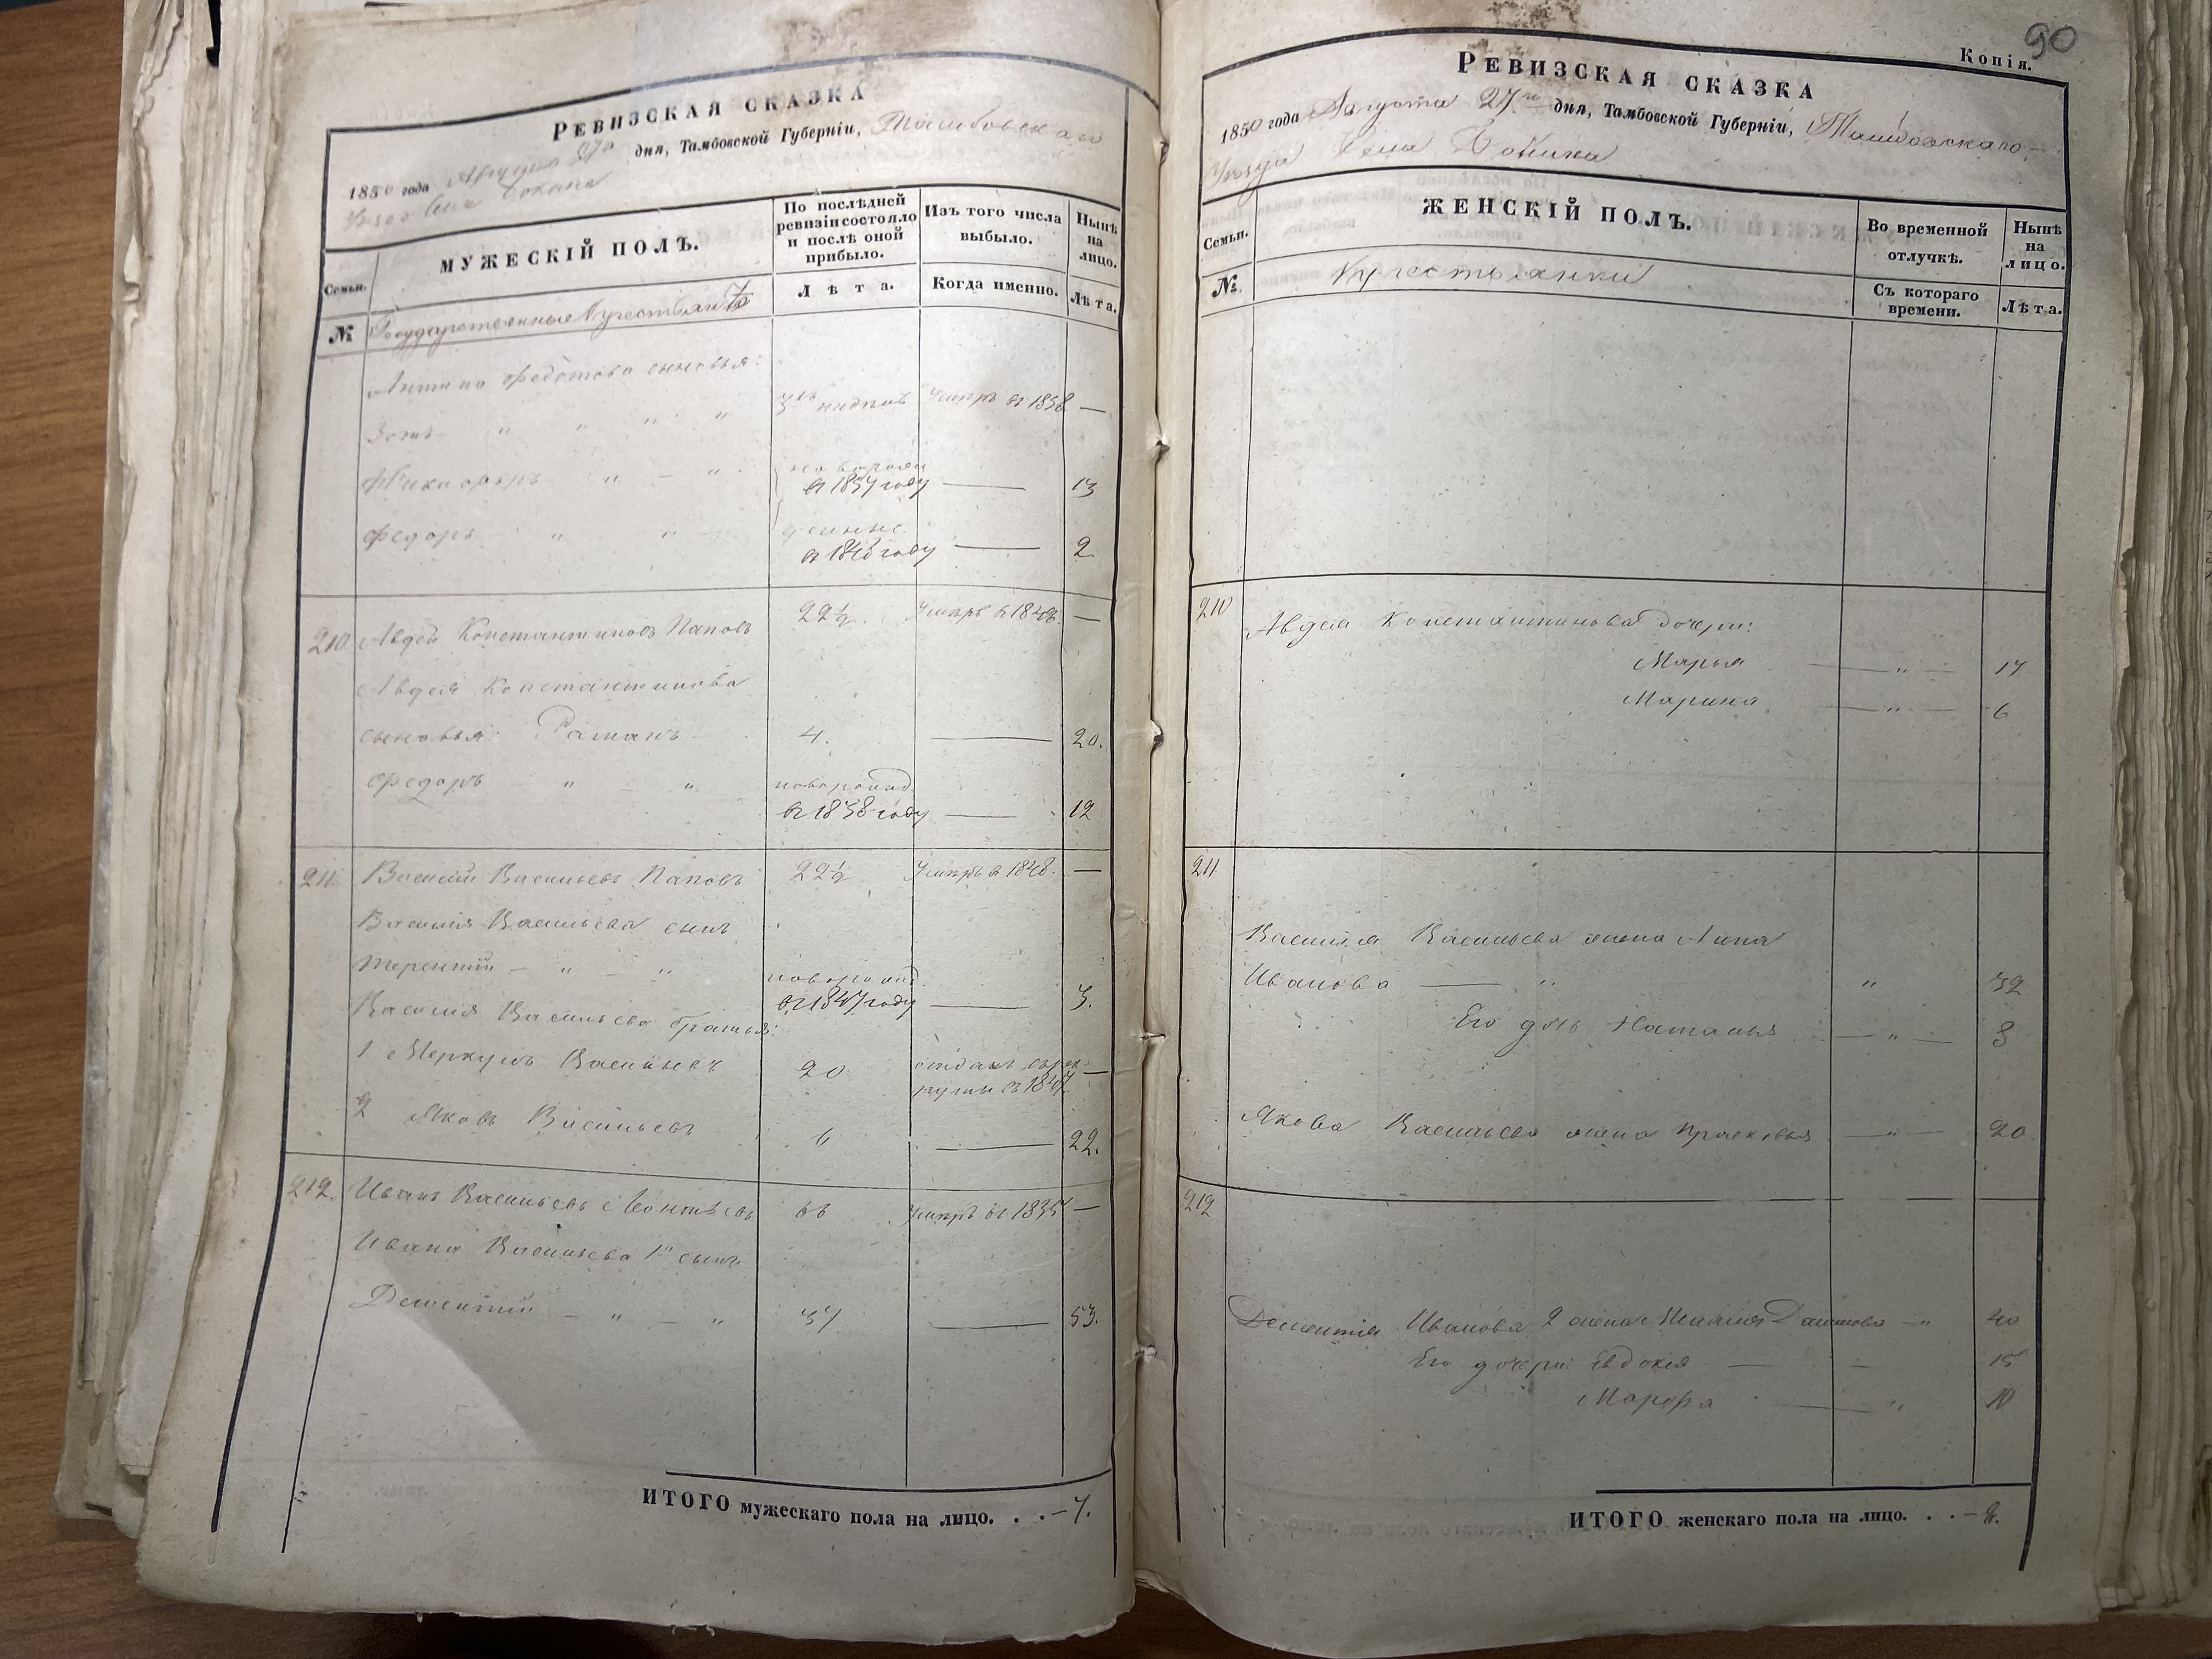 Ревизская сказка
1850 года Августа 27го дня, Тамбовской Губерніи, Тамбовскаго
Уезда Села
Семьи.
МУЖЕСКІЙ ПОЛЪ.
По послѣдней ревизіи состояло и послѣ оной прибыло.
Изъ того числа выбыло.
Нынѣ на лицо.
№
Государственные Крестьяне
Лѣта.
Когда именно.
Лѣта.
Антипа сыновья:
Зотъ " " " " Умеръ въ 1838 —
Никифоръ " — " новорожд въ 1837 году — 13
Федоръ " " въ 1848 году — 2
210. Авдей Константиновъ Паповъ 22½ Умеръ въ 1848. —
Авдея Константинова
сыновья: Раманъ 4. — 20.
Федоръ " — " новорожд.
въ 1838 году — 12
211. Василий Васильевъ Паповъ 22½ Умеръ в 1848. —
Василия Васильева сынъ
Терентий — " — " новорожд.
въ 1847 году — 3.
Василия Васильева братья:
1 Меркулъ Васильевъ 20 отданъ въ рек-
руты въ 1847 —
2 Яковъ Васильевъ 6 — 22.
212. Иванъ Васильевъ Леонтьевъ 66 Умеръ въ 1835 —
Ивана Васильева 1й сынъ
Дементий — " — " 37 — 53.
ИТОГО мужескаго пола на лицо. . . — 7.
90
Копія.
Ревизская сказка
1850 года Августа 27го дня, Тамбовской Губерніи, Тамбовскаго
Уезда Села
Семьи.
ЖЕНСКІЙ ПОЛЪ.
Во временной отлучкѣ.
Нынѣ на лицо.
№
Крестьянки
Съ котораго времени.
Лѣта.
210 Авдея Константинова дочери:
Марья — " — 17
Марина — " — 6
211
Василия Васильева жена Анна
Иванова — " " 32
Его дочь Наталья — " — 8
Якова Васильева жена Прасковья — " — 20
212
Дементия Иванова 2 жена Данилова — " 40
Его дочери: Евдокия — — 15
Марфа — " 10
ИТОГО женскаго пола на лицо. . . — 8.